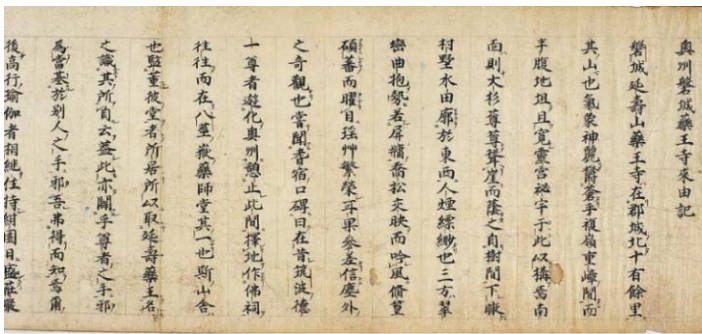 奥州磐城藥王寺來由記
磐城延壽山藥王寺在郡城北十有餘里
其山也氣象神麗欝蒼乎複嶺重嶂間而
半腹地坦且寛靈宮秘宇于此以構焉南
面則大杉蓴蓴聳崖而蔭之自樹間下瞰
村墅水田廓於東西人煙縹緲也三方翠
巒曲抱勢若屏牆喬松交映而吟風脩篁
碩蕃而曜日瑶艸繁榮耳果參差信塵外
之奇觀也嘗聞耆宿口碑曰在昔筑波德
一尊者遊化奥州憩止此間擇地作佛祠
往往而在八莖嶽藥師堂其一也斯山舎
也監董彼堂者所居所以取延壽藥王名
之識其所自云蓋此亦闢乎尊者之手邪
為當基於別人之手邪吾弗得而知焉爾
後高行瑜伽者相継住持紺園日盛莊嚴